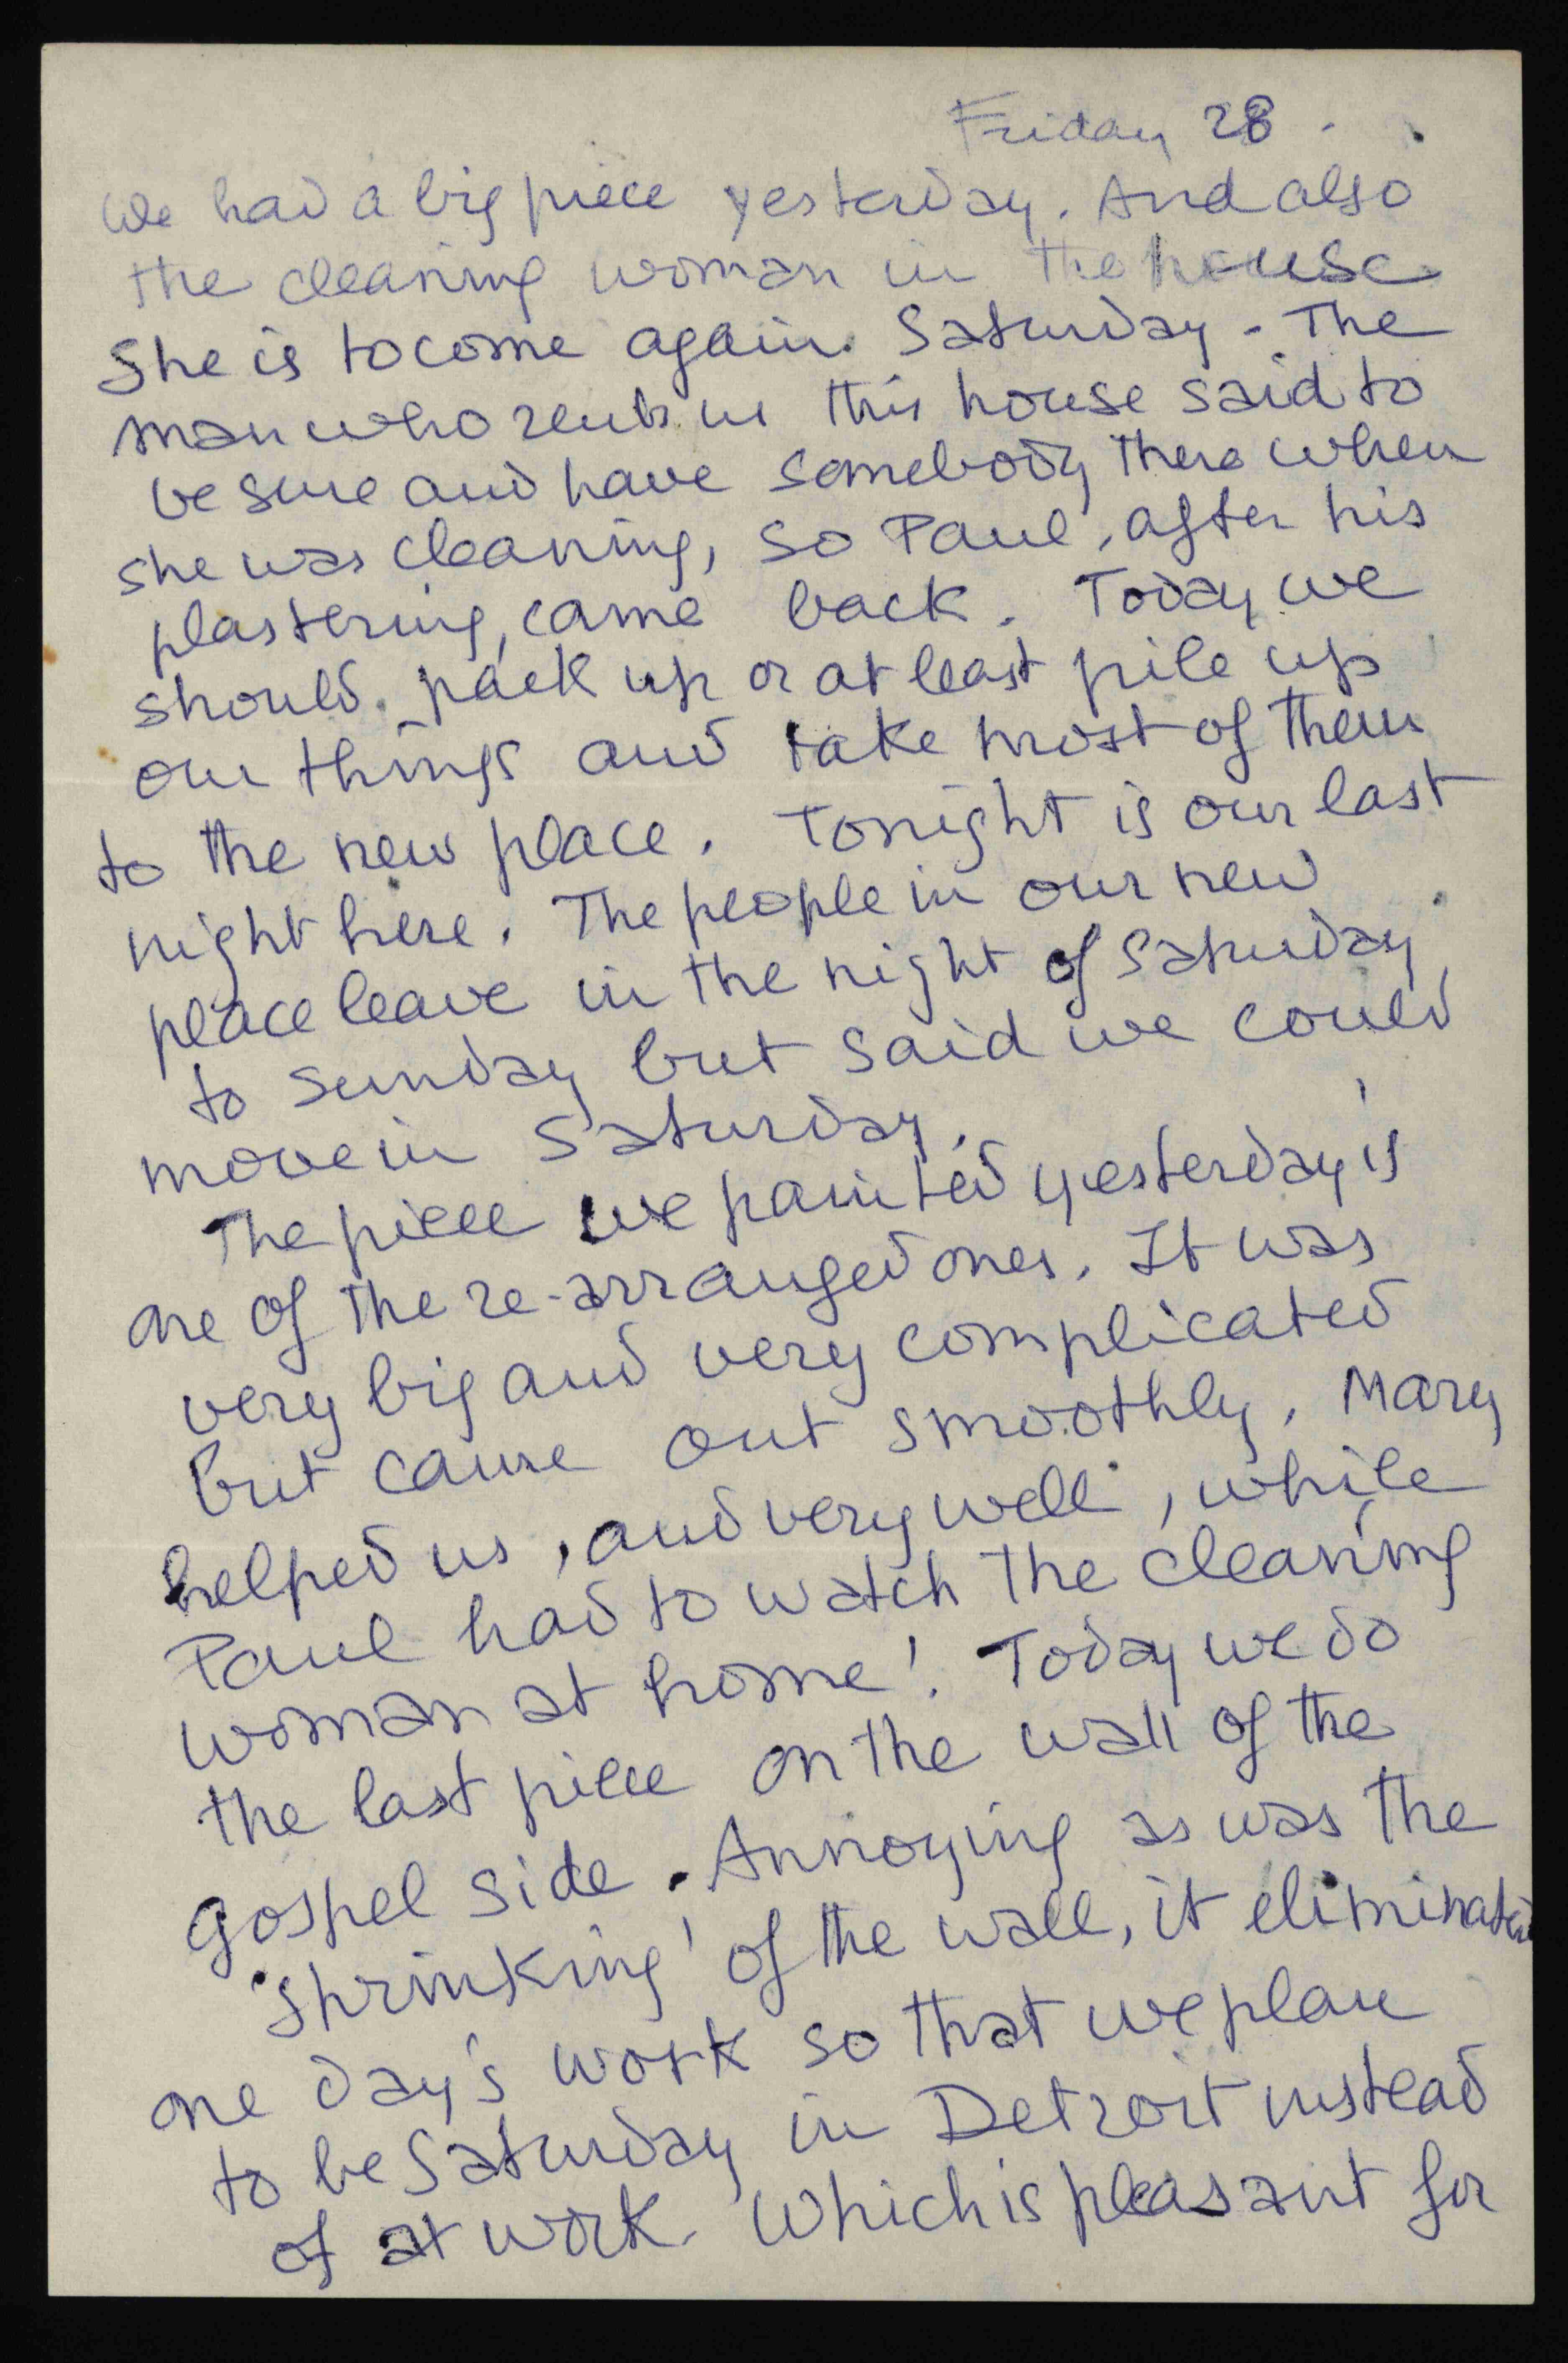 Friday 28.
We had a big piece yesterday. And also
the cleaning woman in the house
She is to come again. Saturday. The
man who rents us this house said to
be sure and have somebody there when
she was cleaning, so Paul, after his
plastering, came back. Today we
should pack up or at least pile up
our things and take most of them
to the new place. Tonight is our last
night here. The people in our new
place leave in the night of Saturday
to Sunday but said we could
move in Saturday.
The piece we painted yesterday is
one of the re-arranged ones. It was
very big and very complicated
but came out smoothly. Mary
helped us, and very well, while
Paul had to watch the cleaning
woman at home! Today we do
the last piece on the wall of the
gospel side. Annoying as was the
'shrinking' of the wall, it eliminated
one day's work so that we plan
to be Saturday in Detroit instead
of at work. Which is pleasant for